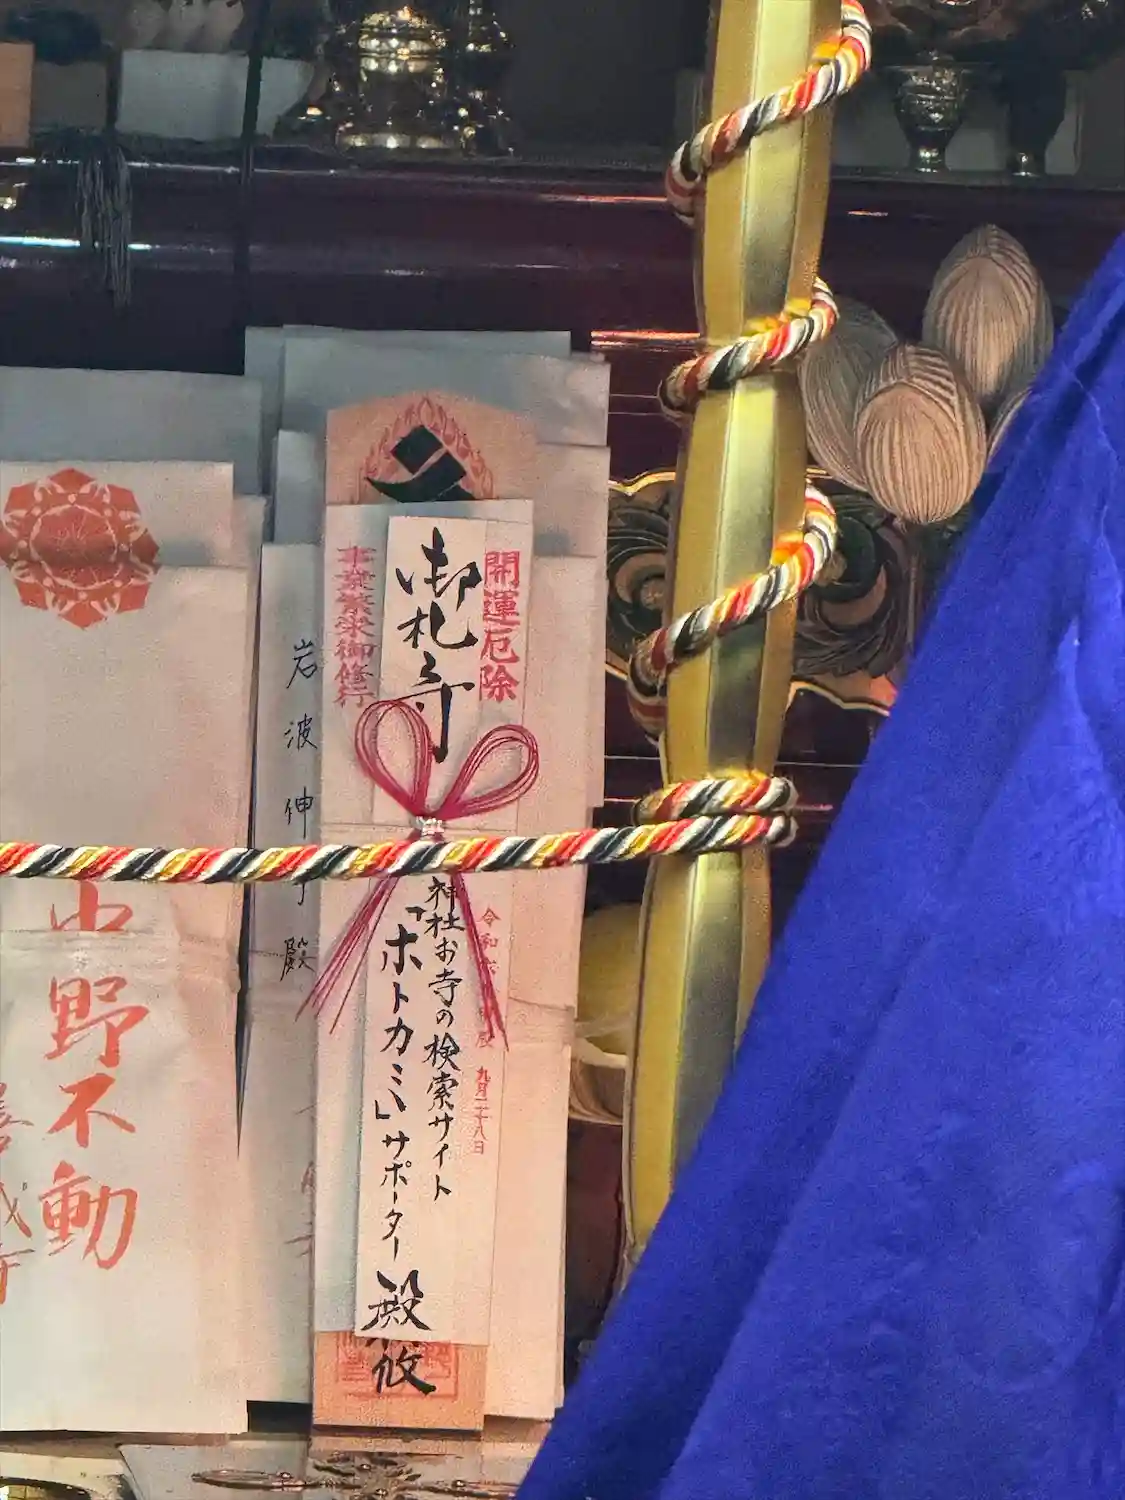 開運厄除
御札守
事業繁栄御修行
神社お寺の検索サイト
「ホトカミ」サポーター
殿
攸
令和六
九月二十八日
岩波伸
殿
中野不動